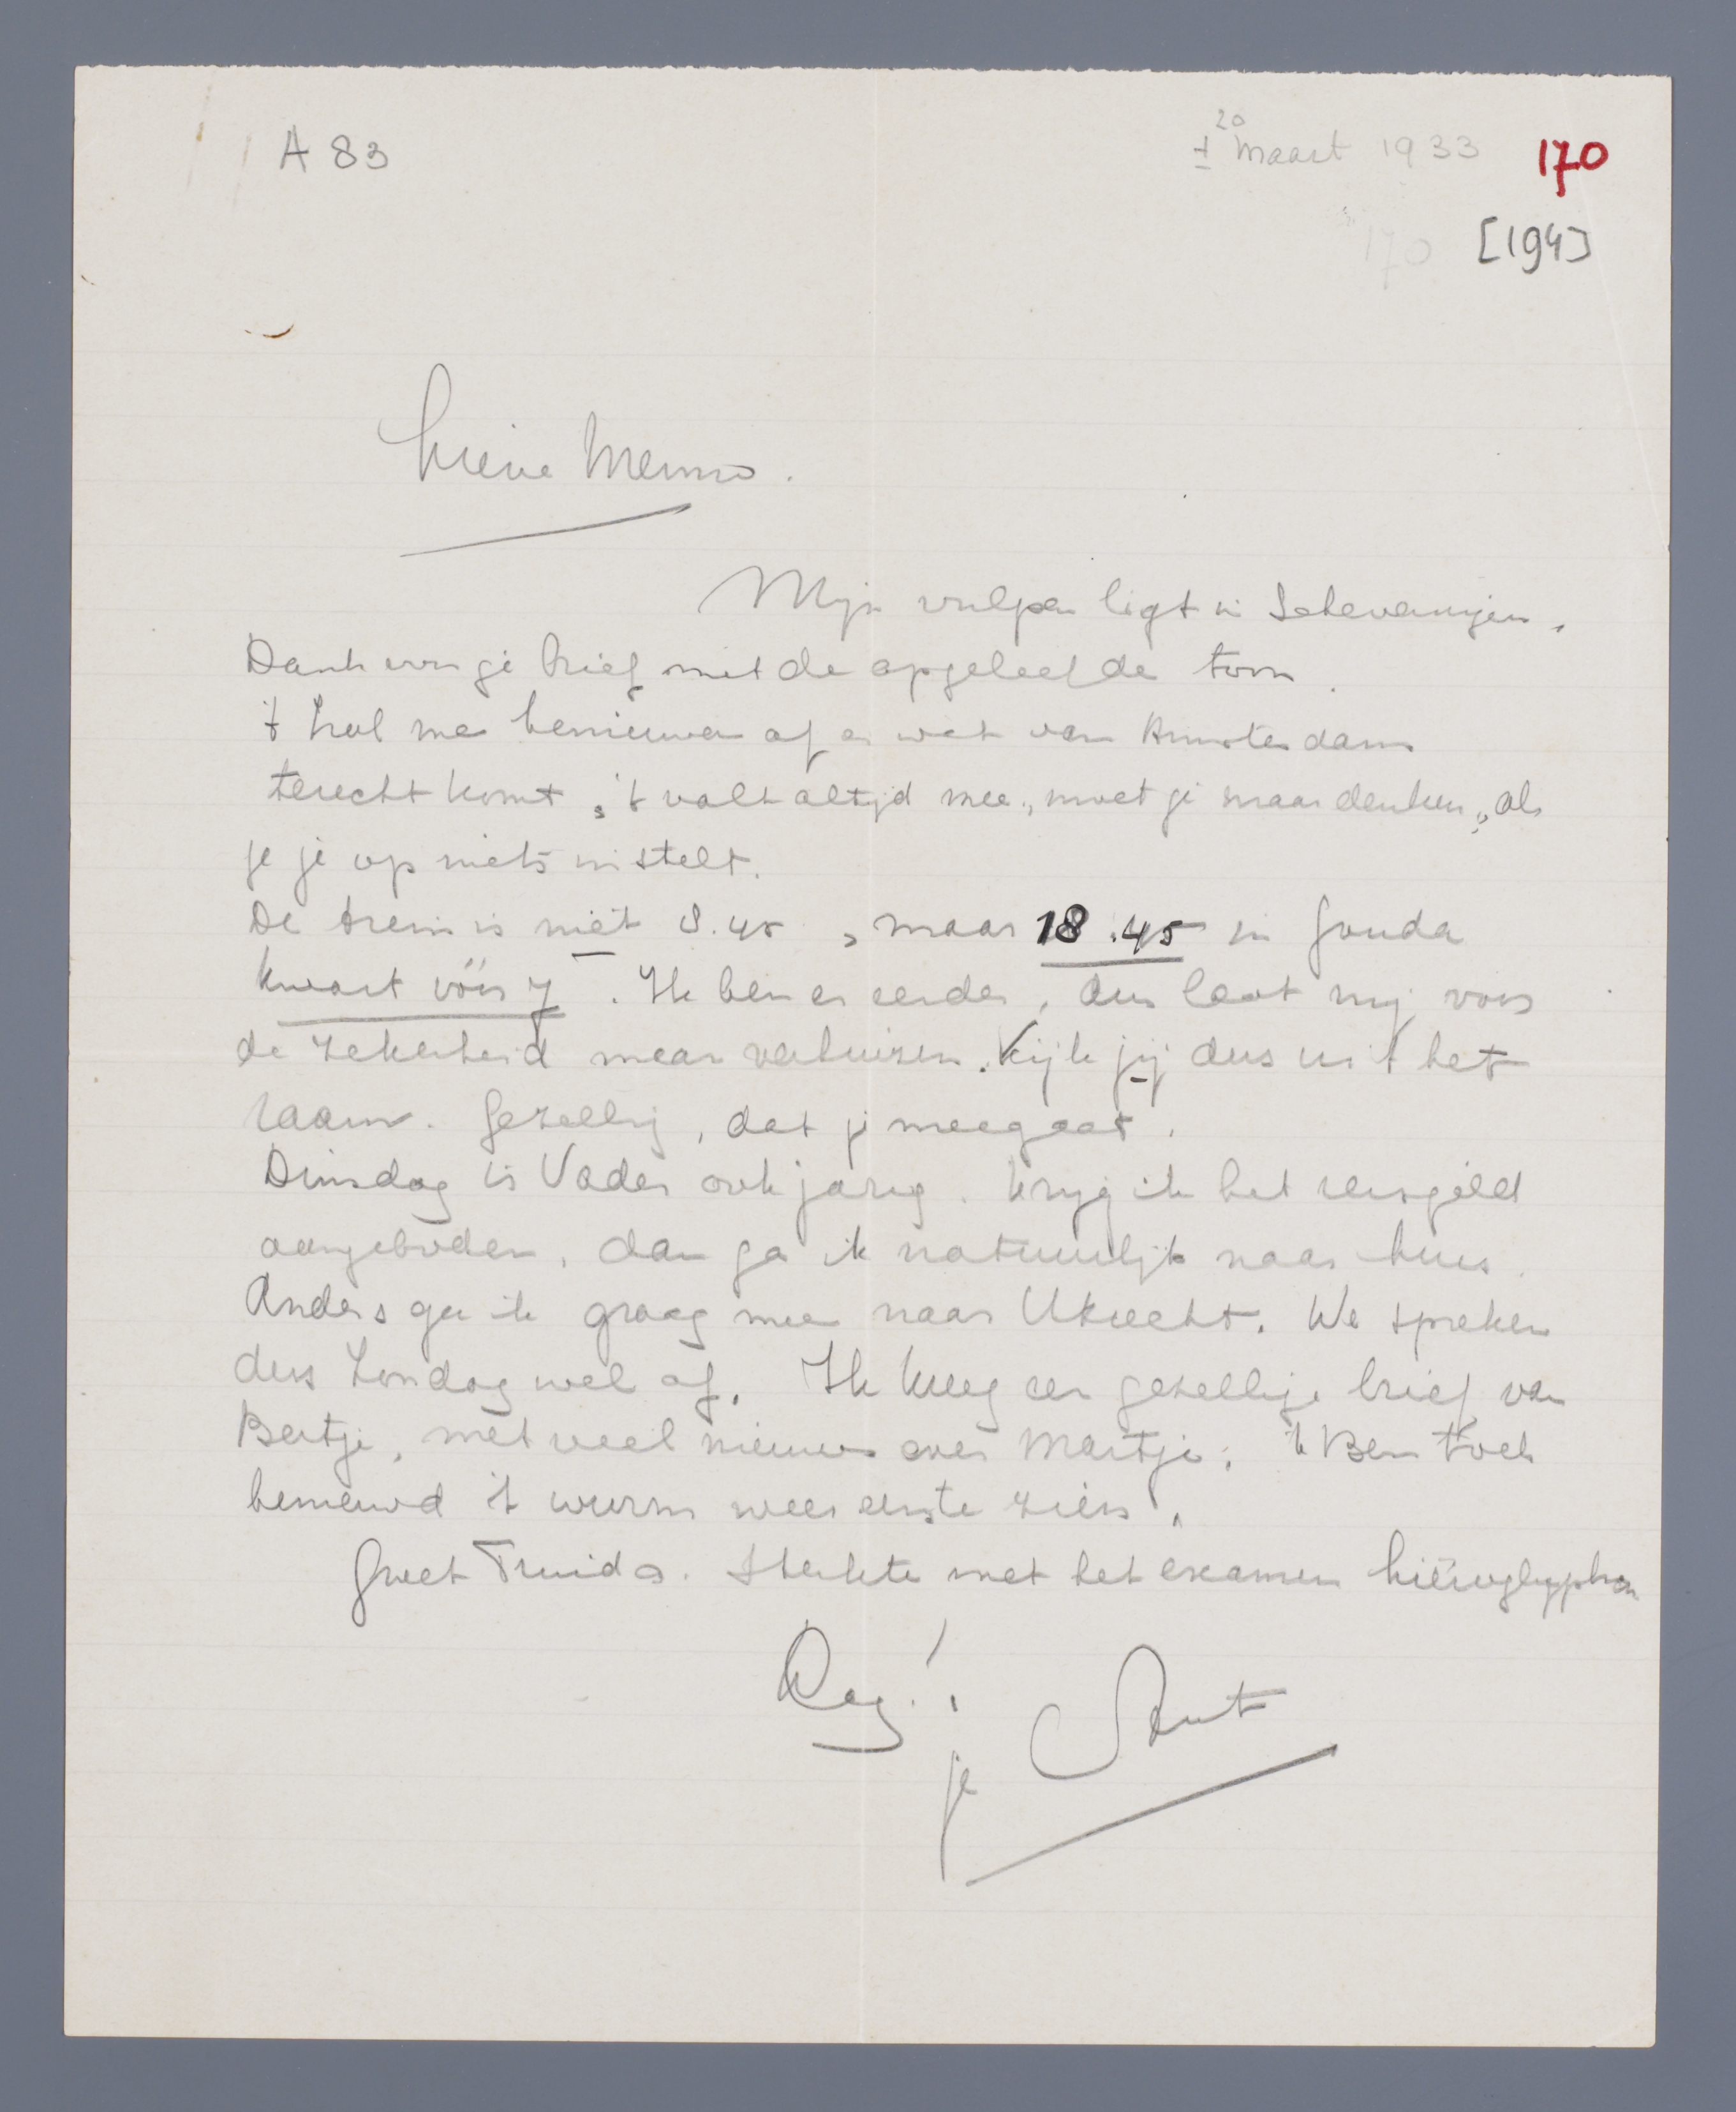 A 83
± 20 Maart 1933
170
170 [194]
Lieve Menno.
Mijn vulpen ligt in Scheveningen.
Dank voor je brief met de opgeleefde toon.
't Zal me benieuwen of er wat van Amsterdam
terecht komt, 't valt altijd mee, moet je maar denken, als
je je op niets instelt.
De trein is niet 8.45, maar 18.45 in Gouda
kwart vóór 7. Ik ben er eerder, dus laat mij voor
de zekerheid maar verhuizen. Kijk jij dus uit het
raam. Gezellig, dat je meegaat.
Dinsdag is Vader ook jarig. Krijg ik het reisgeld
aangeboden, dan ga ik natuurlijk naar huis.
Anders ga ik graag mee naar Utrecht. We spreken
dus Zondag wel af. Ik kreeg een gezellige brief van
Bertje, met veel nieuws over Maartje; 'k Ben toch
benieuwd 't wurm weer eens te zien.
Groet Truida. Sterkte met het examen hiëroglyphen
Dag!
je Ant